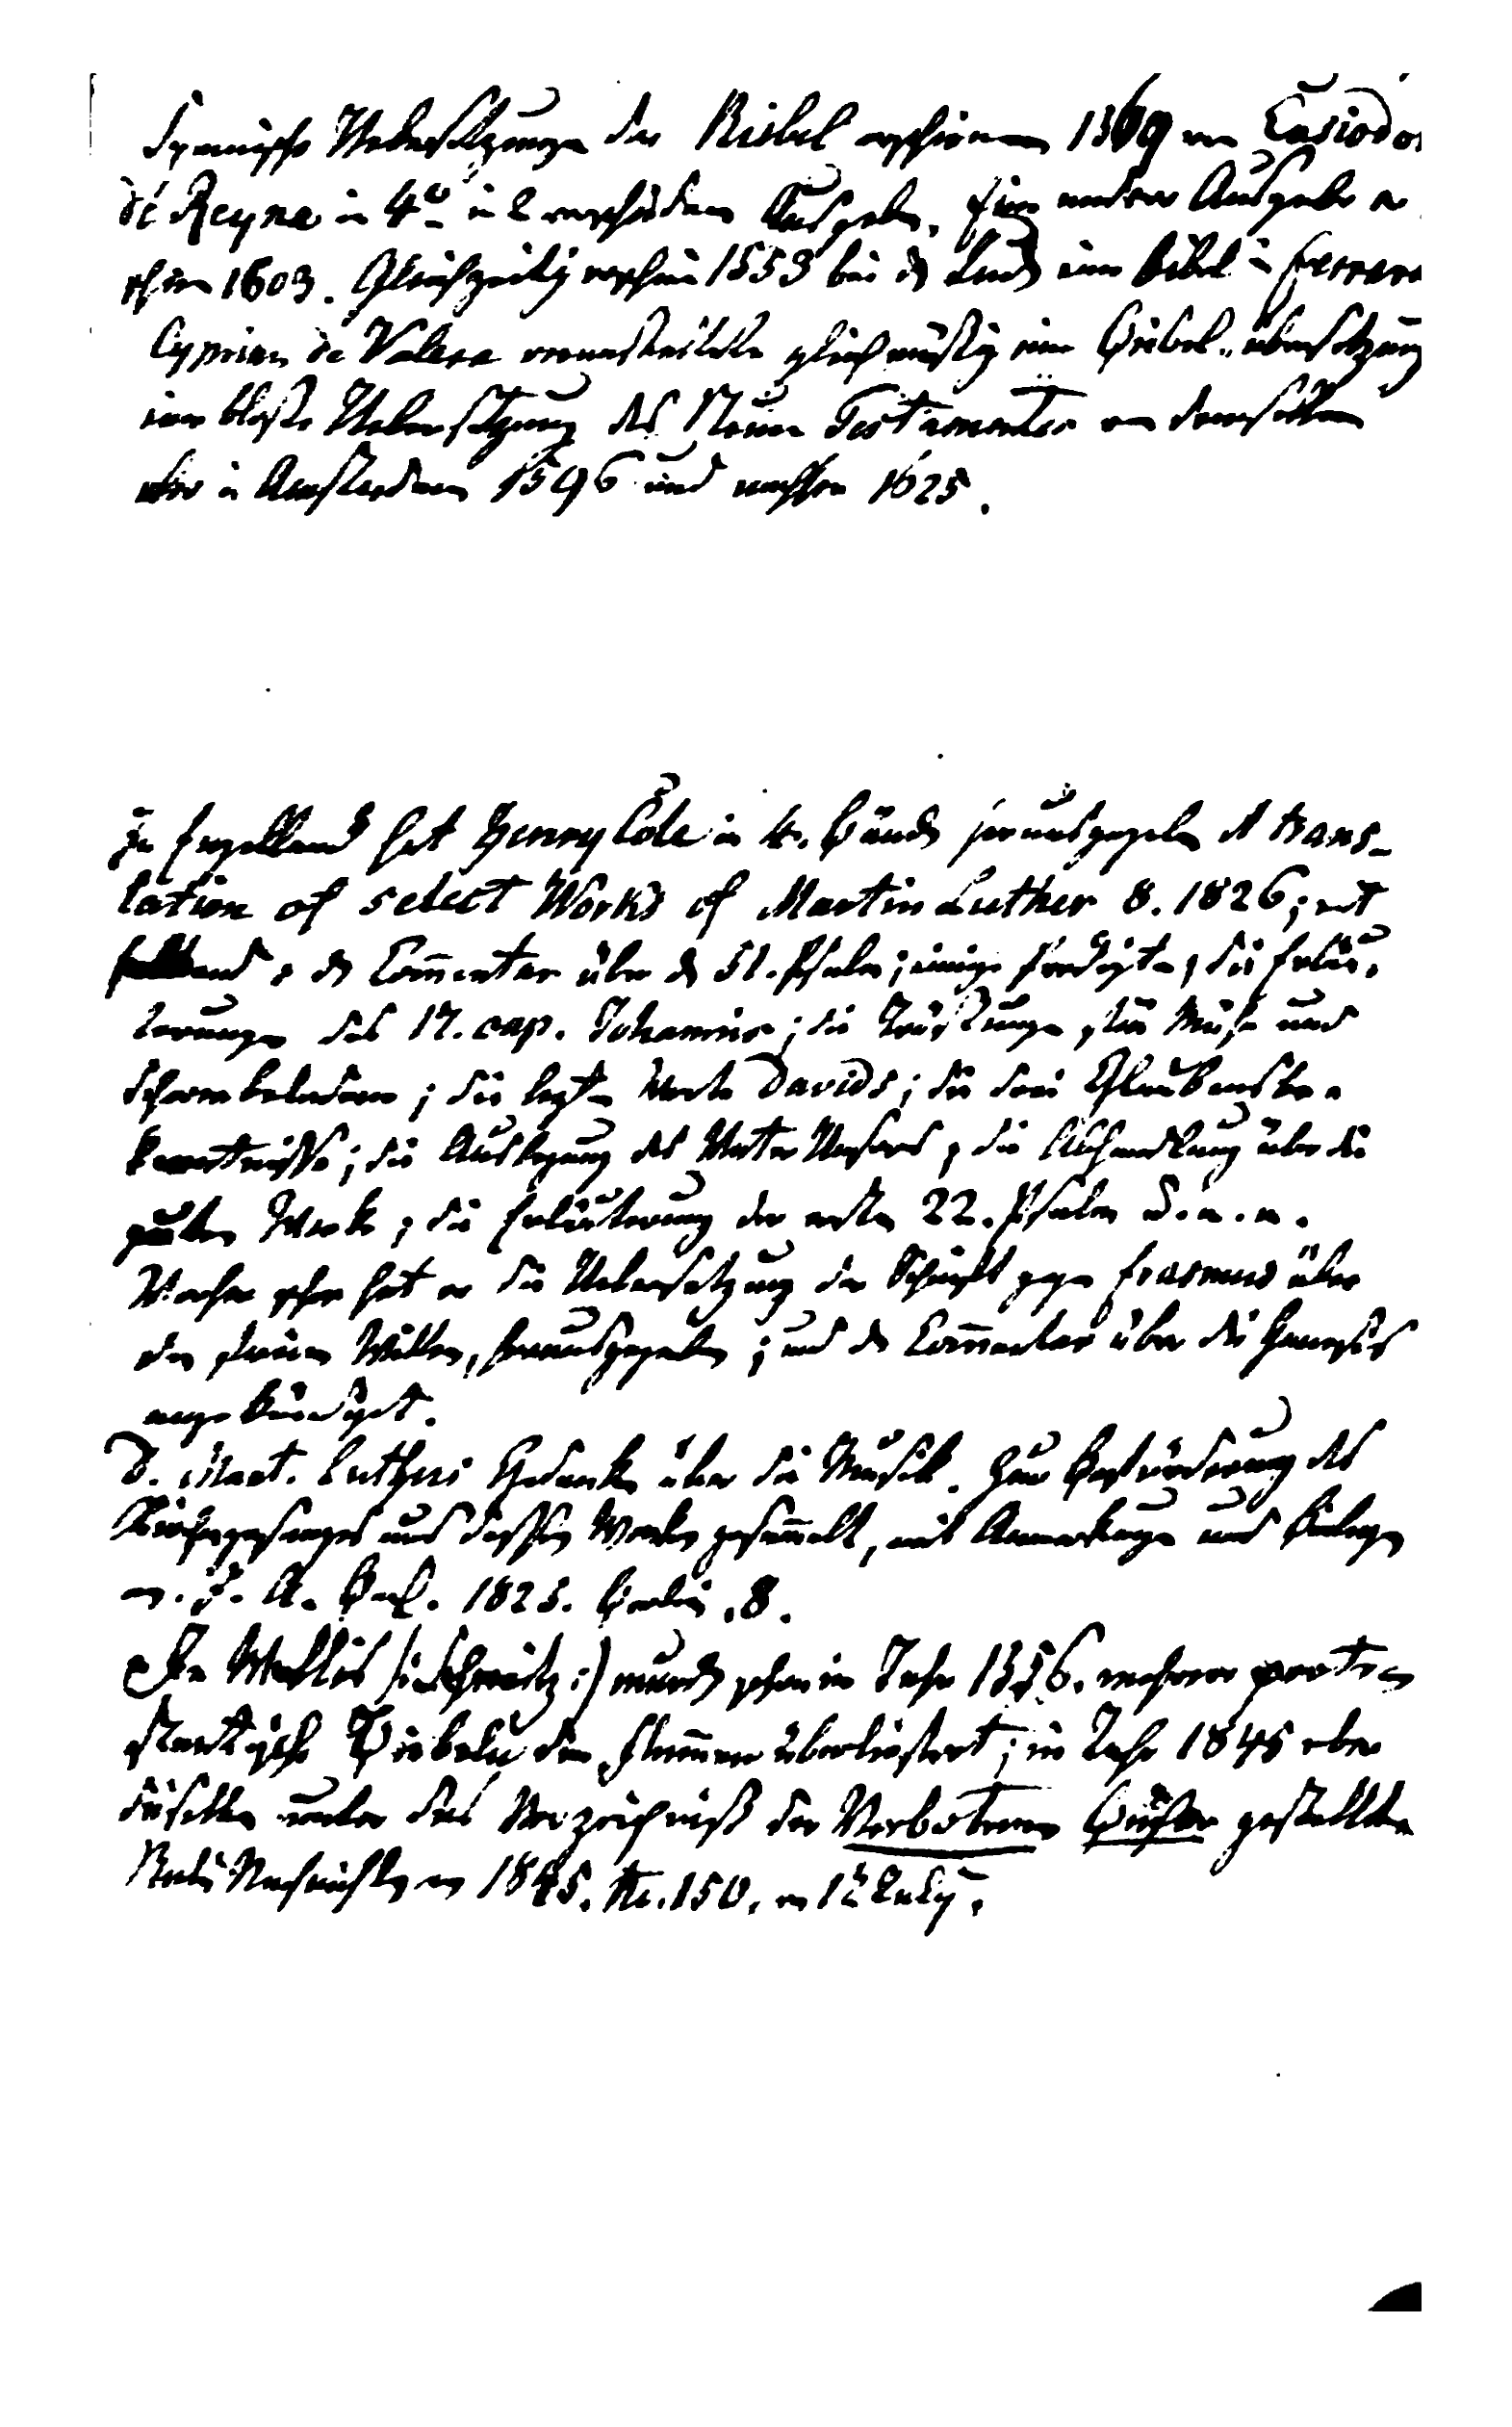 Spanische Uebersetzungen der Biebel erschienen 1569 von Casiodor
de Reyna in 4º in 2 verschiedenen Ausgaben. Eine andere Ausgabe er
schien 1603. Gleichzeitig erschien 1553 bei den Juden eine Bibel in Ferrara
Cyprian de Valera veranstaltete gleichmäßig eine Biebel-übersetzung
eine bloße Uebersetzung des Neuen Testamentes von demselben
in Amsterdam 1596 und 1625.
In Engelland hat Henry Cole in 4. Bänden herausgegeben A trans-
lation of select Works of Martin Luther 8. 1826; ent
haltend: den Commentar über den 51. Psalm; einige Predigten, die Erläu-
terungen des 17. cap. Johannis; die Tröstungen für Müh und
Schwerbeladene; die letzten Worte Davids; die drei Glaubensbe-
kenntnisse; die Auslegung des Vater Unsers; die Abhandlung über die
guten Werke; die Erläuterung der ersten 22. Psalmen u. a. m.
Vorher schon hat er die Uebersetzung der Schrift gegen Erasmus über
den freien Willen, herausgegeben; und den Commentar über die Genesis
angekündigt.
D. Mart. Luthers Gedanken über die Musik. Zur Beförderung des
Kirchengesanges aus dessen Werken gesammelt, mit Anmerkungen und Beilagen
von F. A. Beck. 1825. Berlin. 8.
In Wallis /: Schweitz :/ wurden schon im Jahr 1556. mehrere prote-
stantische Biebeln den Flammen überliefert; im Jahr 1845 aber
dieselben unter das Verzeichniß der Verbotenen Bücher gestellt.
Nachrichten von 1845. Nr. 150. vom 1t July.